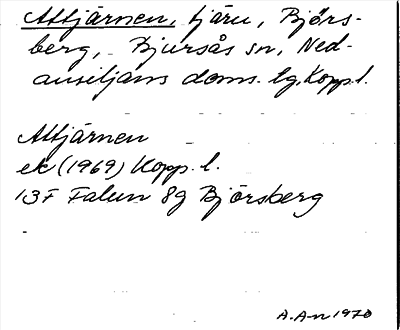 Attjärnen, tjärn, Björs-
berg, Bjursås sn, Ned-
ansiljans doms. lg, Kopp. l.
Attjärnen
ek (1969) Kopp. l.
13F Falun 8g Björsberg
A. A-n 1970